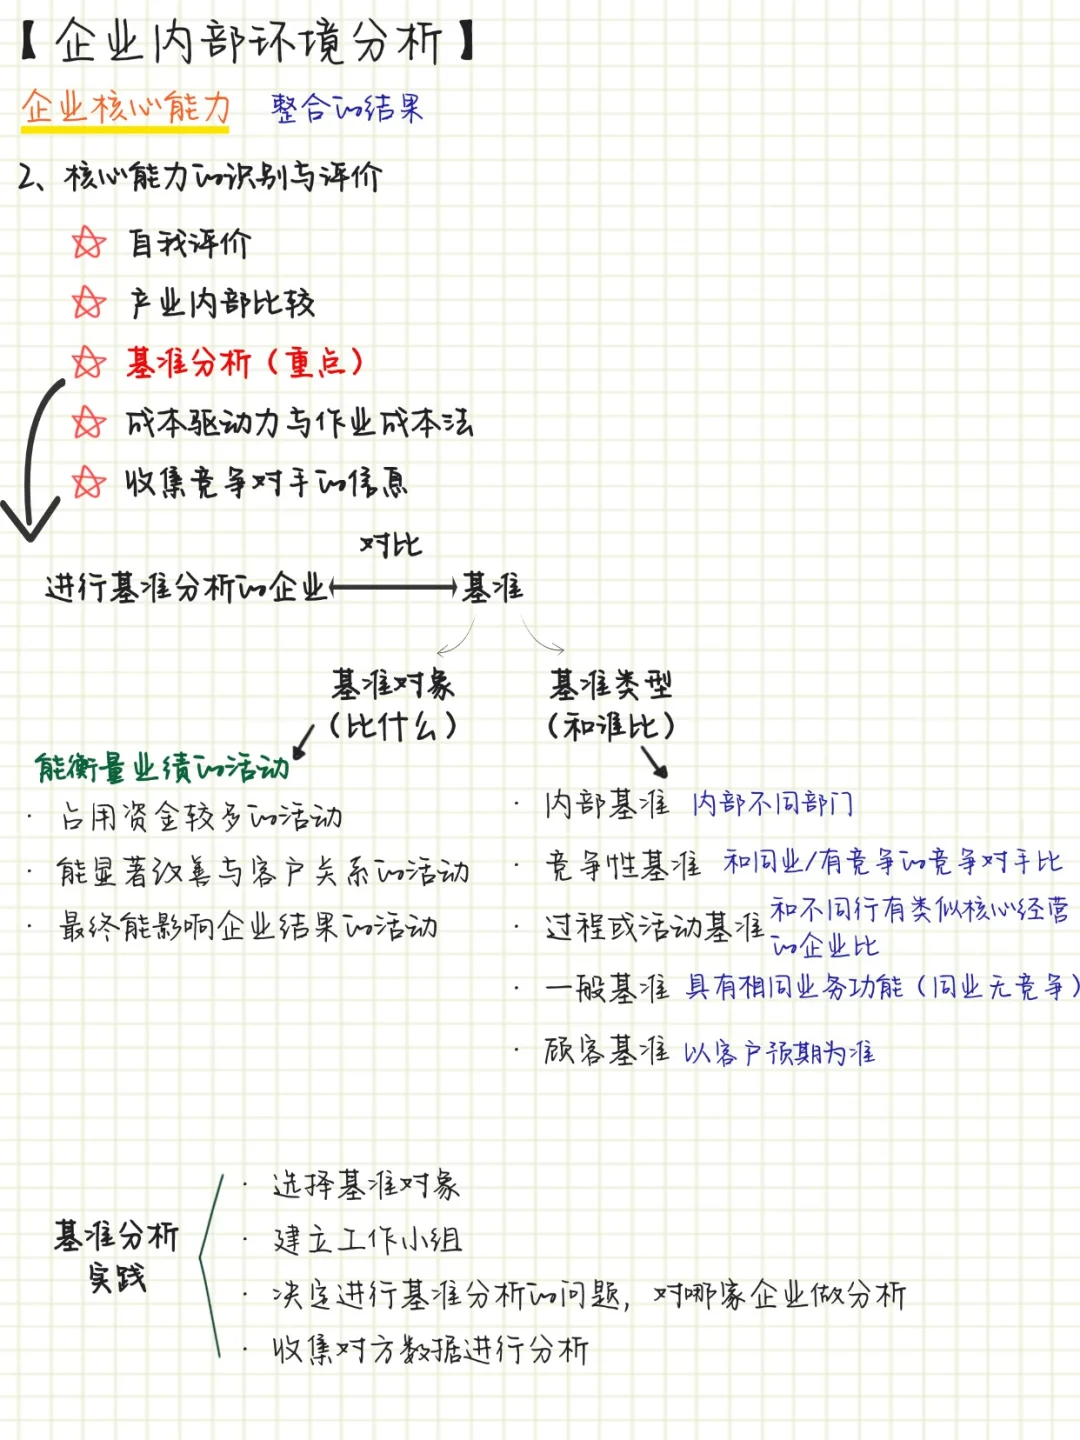 【企业内部环境分析】
企业核心能力 整合的结果
2、核心能力的识别与评价
自我评价
产业内部比较
基准分析（重点）
成本驱动力与作业成本法
收集竞争对手的信息
对比
进行基准分析的企业 基准
基准对象
（比什么）
基准类型
（和谁比）
能衡量业绩的活动
· 占用资金较多的活动
· 能显著改善与客户关系的活动
· 最终能影响企业结果的活动
· 内部基准 内部不同部门
· 竞争性基准 和同业/有竞争的竞争对手比
· 过程或活动基准 和不同行有类似核心经营
的企业比
· 一般基准 具有相同业务功能（同业无竞争）
· 顾客基准 以客户预期为准
基准分析
实践
· 选择基准对象
· 建立工作小组
· 决定进行基准分析的问题，对哪家企业做分析
· 收集对方数据进行分析